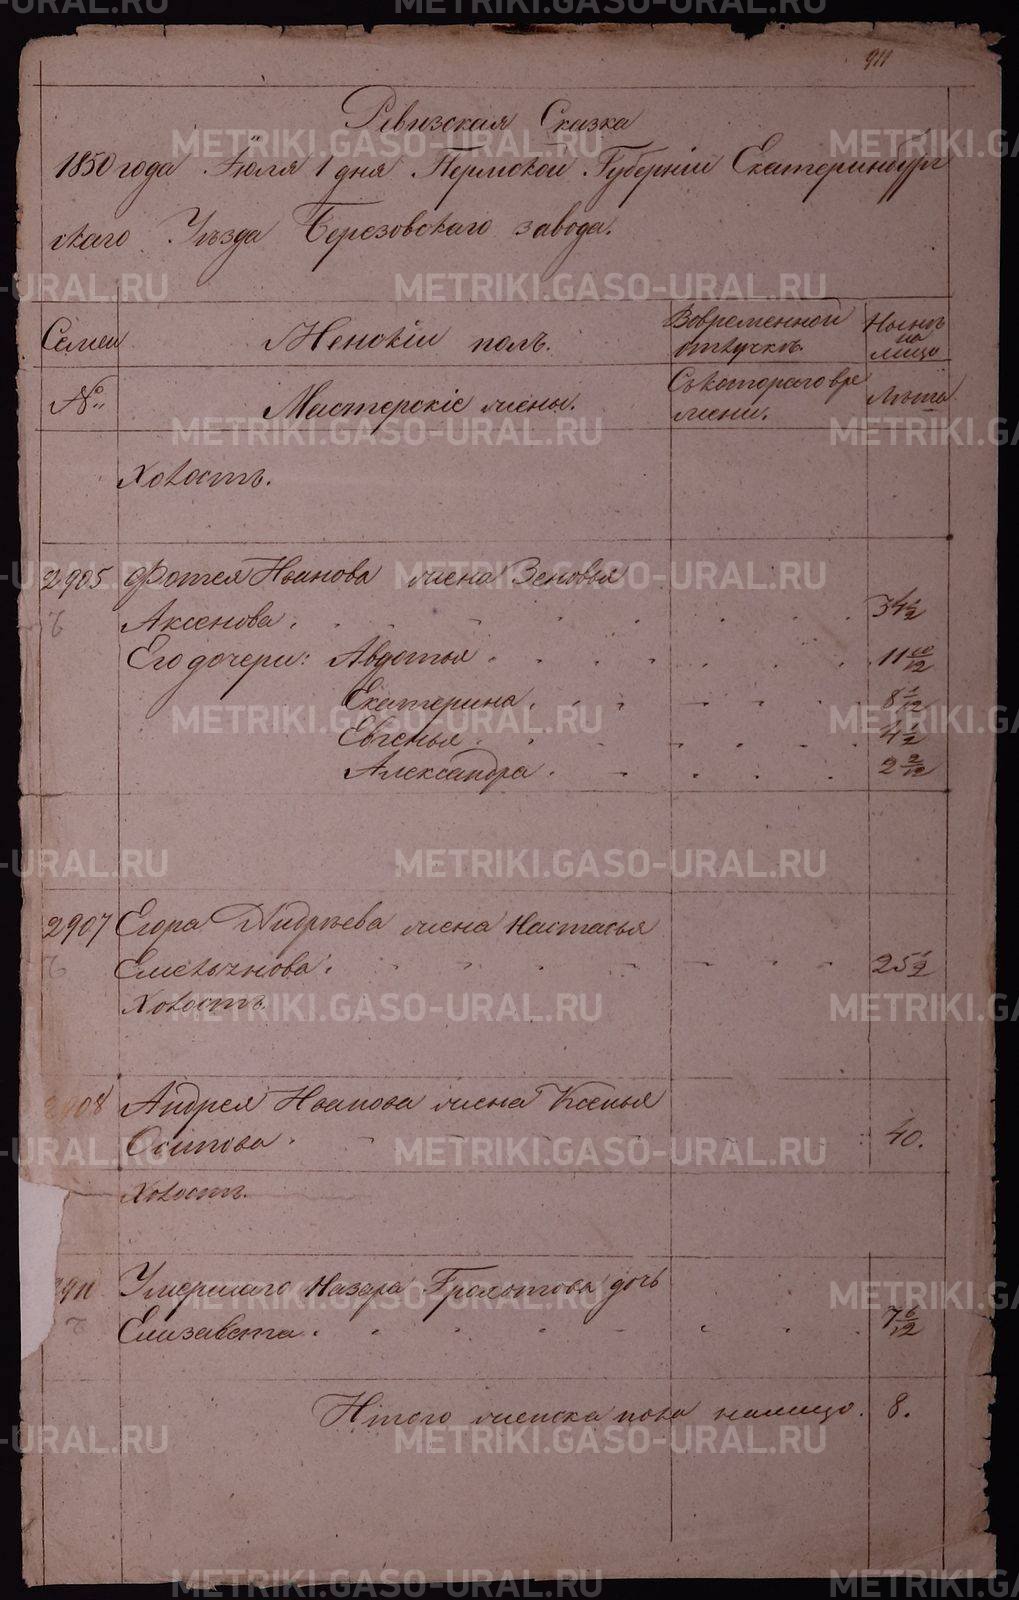 911
Ревизская Сказка
1850 года Іюля 1 дня Пермской Губерніи Екатеринбург
скаго Уѣзда Березовскаго завода.
Семьи Женскій полъ. Вовременной отлучкѣ. Нынѣ на лицо
№ Мастерскіе жены. Съ котораго вре мени. Лѣта
Холостъ.
2905 Фотея Иванова жена Зеновья
Аксенова. 34 1/2
Его дочери: Авдотья 11 10/12
Екатерина. 8 1/12
Евгенья 4 1/2
Александра. 2 2/12
2907 Егора Андрѣева жена Настасья
Емельянова. 25 1/2
Холостъ.
2908 Андрея Иванова жена Ксенья
Осипова. 40.
Холостъ.
2911 Умершаго Назара дочь
Елизавета. 7 6/12
Итого женска пола налицо. 8.
METRIKI.GASO-URAL.RU